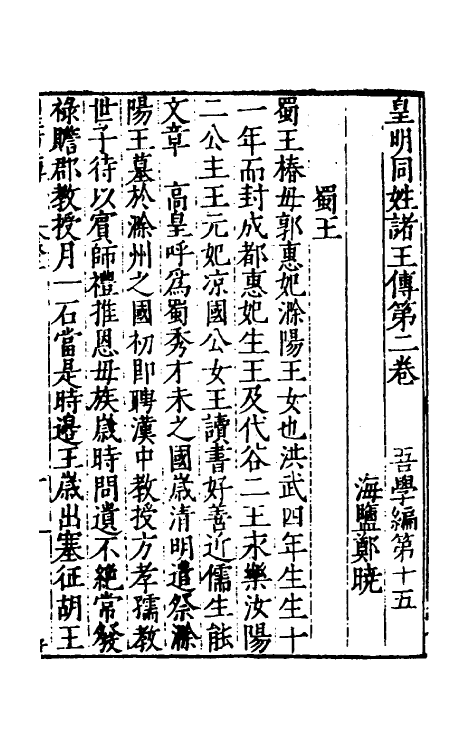 皇明同姓諸王傳第二卷　吾學編第十五
海鹽鄭曉
蜀王
蜀王椿毋郭惠妃滁陽王女也洪武四年生生十
一年而封成都惠妃生王及代谷二王永樂汝陽
二公主王元妃凉國公女王讀書好善近儒生能
文章　高皇呼爲蜀秀才未之國嵗清明遣祭滁
陽王墓於滁州之國初即聘漢中教授方孝孺教
世子待以賓師禮推恩毋族嵗時問遺不絶常發
祿贍郡教授月一石當是時邊王嵗出塞征胡王